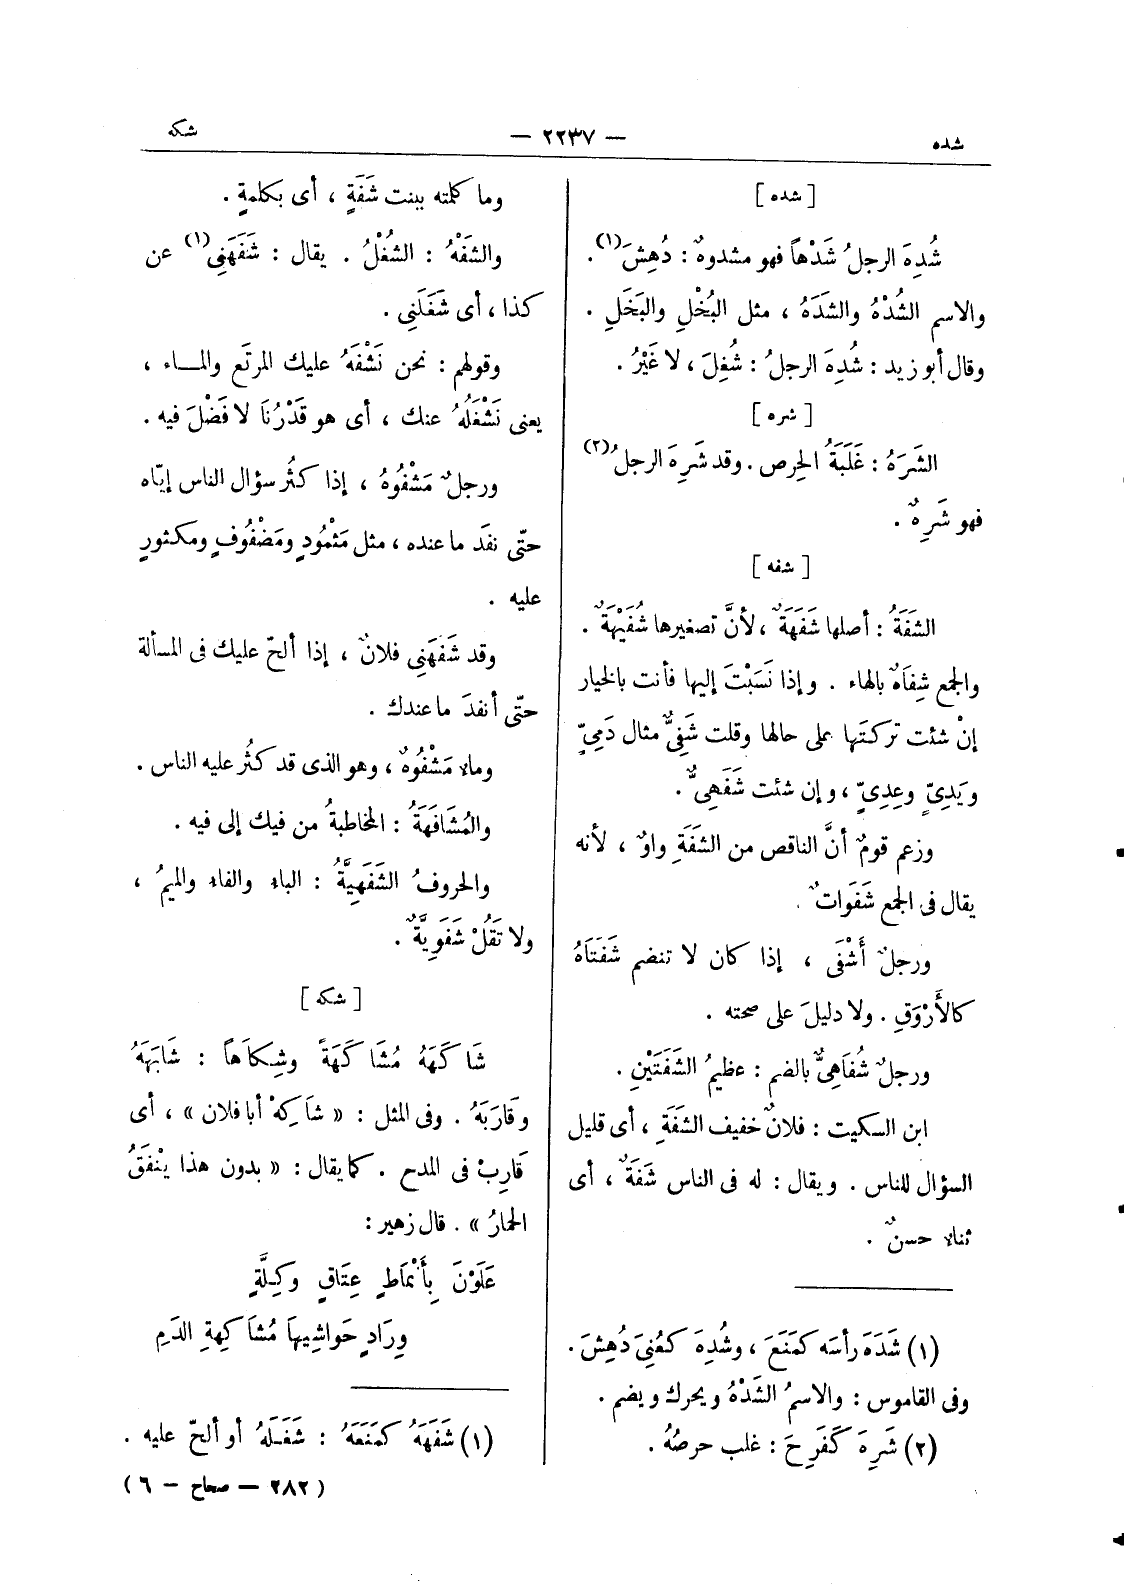 شده
— ٢٢٣٧ —
شكه
[ شده ]
شُدِهَ الرجلُ شَدْهاً فهو مشدوهٌ : دُهِشَ(١).
والاسم الشُدْهُ والشَدَهُ ، مثل البُخْلِ والبَخَلِ .
وقال أبو زيد : شُدِهَ الرجلُ : شُغِلَ ، لا غَيْرُ .
[ شره ]
الشَرَهُ : غَلَبَةُ الحِرص . وقد شَرِهَ الرجلُ(٢)
فهو شَرِهٌ .
[ شفه ]
الشَفَةُ : أصلها شَفَهَةٌ ، لأنَّ تصغيرها شُفَيْهَةٌ .
والجمع شِفَاهٌ بالهاء . وإذا نَسَبْتَ إليها فأنت بالخيار
إنْ شئت تركتَها على حالها وقلت شَفِىٌّ مثال دَمِىٍّ
ويَدِىٍّ وعِدِىٍّ ، وإن شئت شَفَهِىٌّ .
وزعم قومٌ أنَّ الناقص من الشَفَةِ واوٌ ، لأنه
يقال فى الجمع شَفَوَاتٌ .
ورجلٌ أَشْفَى ، إذا كان لا تنضم شَفَتَاهُ
كالأَرْوَقِ . ولا دليلَ على صحته .
ورجلٌ شُفَاهِىٌّ بالضم : عظيمُ الشَفَتَيْنِ .
ابن السكيت : فلانٌ خفيف الشَفَةِ ، أى قليل
السؤال للناس . ويقال : له فى الناس شَفَةٌ ، أى
ثناءٌ حسنٌ .
(١) شَدَهَ رأسَه كمَنَعَ ، وشُدِهَ كعُنِىَ دُهِشَ .
وفى القاموس : والاسمُ الشَدْهُ ويحرك ويضم .
(٢) شَرِهَ كَفَرِحَ : غلب حرصُهُ .
وما كلمته ببنت شَفَةٍ ، أى بكلمةٍ .
والشَفْهُ : الشغْلُ . يقال : شَفَهَنِى(١) عن
كذا ، أى شَغَلَنِى .
وقولهم : نحن نَشْفَهُ عليك المرتَع والمـاء ،
يعنى نَشْغَلُهُ عنك ، أى هو قَدْرُنَا لا فَضْلَ فيه .
ورجلٌ مَشْفُوهٌ ، إذا كثُر سؤال الناس إيّاه
حتّى نفَد ما عنده ، مثل مَثْمُودٍ ومَضْفُوفٍ ومكثورٍ
عليه .
وقد شَفَهَنِى فلانٌ ، إذا ألحّ عليك فى المسألة
حتّى أنفدَ ما عندك .
وماء مَشْفُوهٌ ، وهو الذى قد كثُر عليه الناس .
والمُشَافَهَةُ : المخاطبةُ من فيك إلى فيه .
والحروفُ الشَفَهِيَّةُ : الباء والفاء والميمُ ،
ولا تَقُلْ شَفَوِيَّةٌ .
[ شكه ]
شَاكَهَهُ مُشَاكَهَةً وشِكَاهاً : شَابَهَهُ
وقَارَبَهُ . وفى المثل : « شاكِهْ أبا فلان » ، أى
قَارِبْ فى المدح . كما يقال : « بدون هذا يَنْفَقُ
الحمارُ » . قال زهير :
عَلَوْنَ بِأَنْمَاطٍ عِتَاقٍ وكِلَّةٍ
وِرَادٍ حَواشِيها مُشَاكِهةِ الدَمِ
(١) شَفَهَهُ كَمَنَعَهُ : شَغَـلَهُ أو ألحّ عليه .
( ٢٨٢ — صحاح — ٦ )